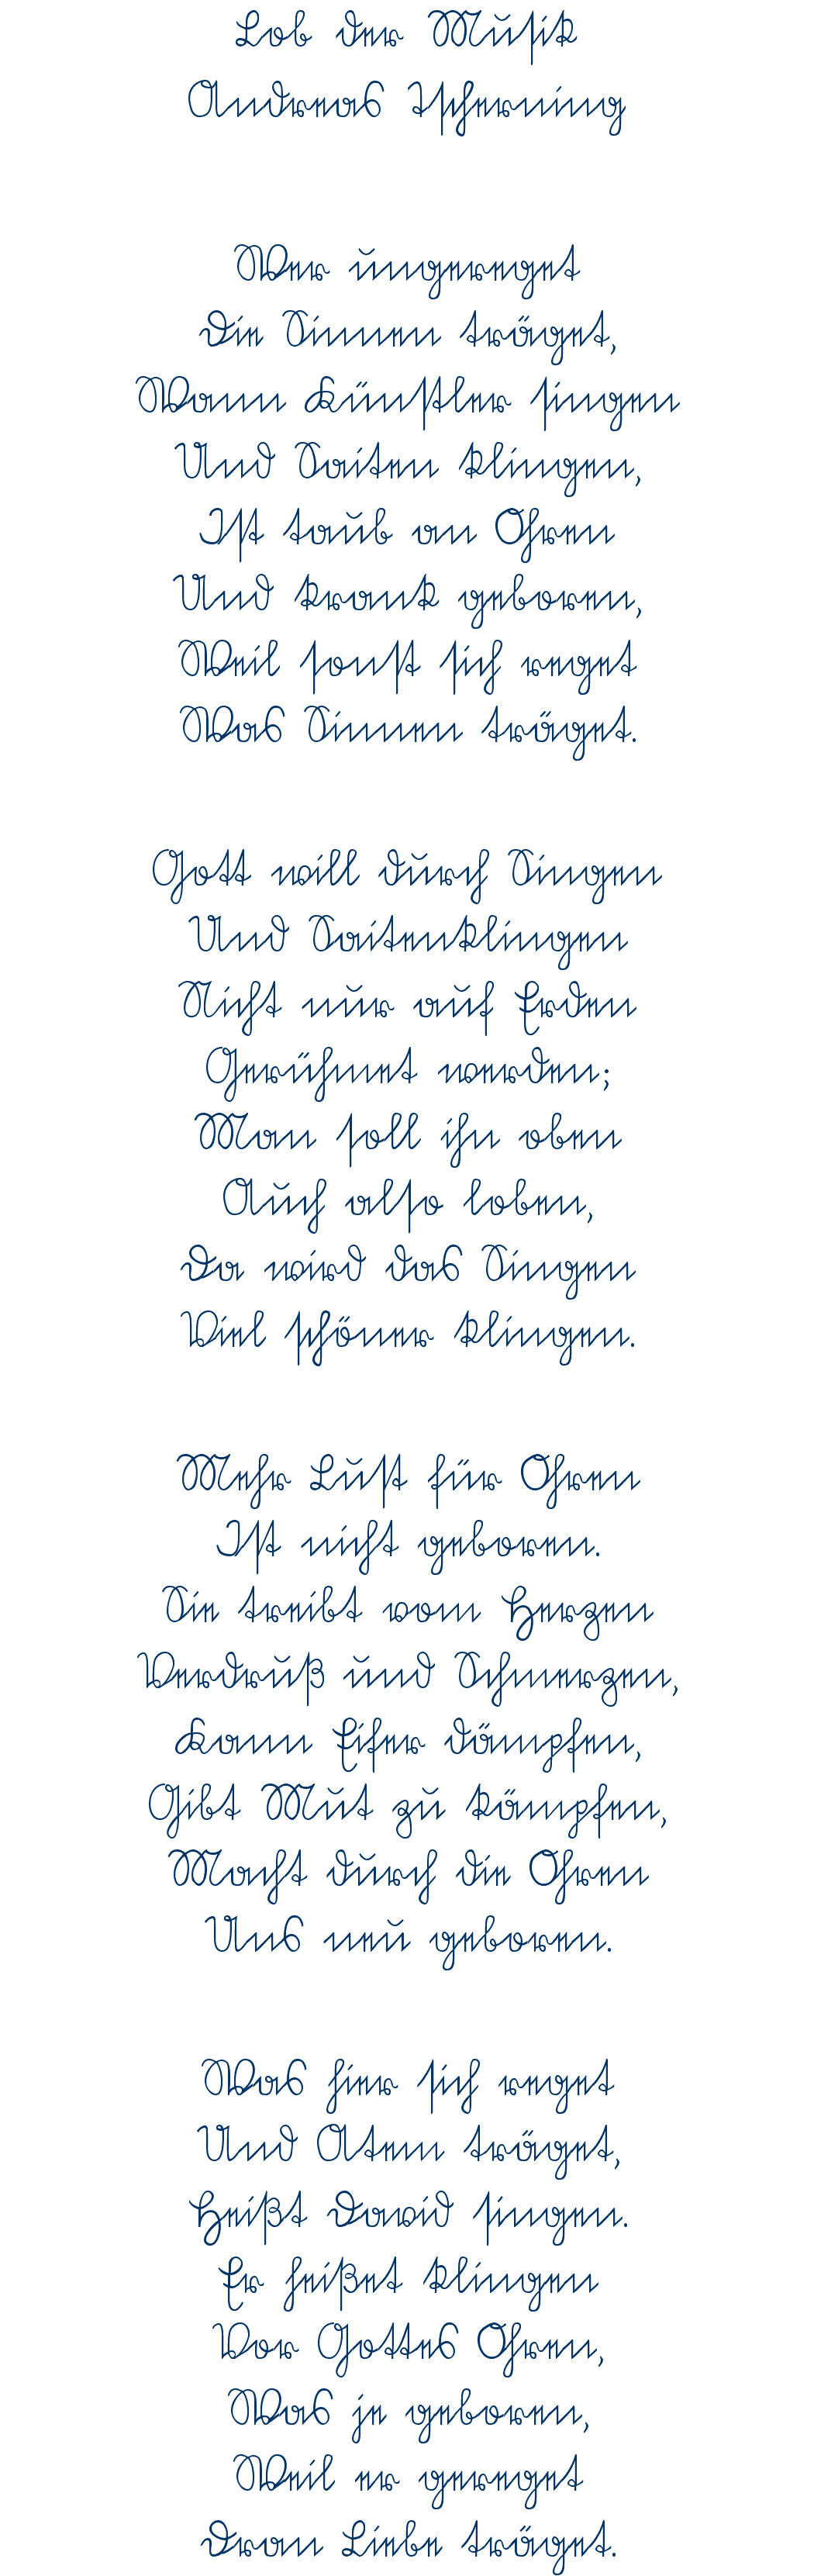 Lob der Musik
Andreas Tscherning
Wer ungereget
Die Sinnen träget,
Wann Künstler singen
Und Saiten klingen,
Ist taub an Ohren
Und krank geboren,
Weil sonst sich reget
Was Sinnen träget.
Gott will durch Singen
Und Saitenklingen
Nicht nur auf Erden
Gerühmet werden;
Man soll ihn oben
Auch also loben,
Da wird das Singen
Viel schöner klingen.
Mehr Lust für Ohren
Ist nicht geboren.
Sie treibt vom Herzen
Verdruß und Schmerzen,
Kann Eifer dämpfen,
Gibt Mut zu kämpfen,
Macht durch die Ohren
Uns neu geboren.
Was hier sich reget
Und Atem träget,
Heißt David singen.
Er heißet klingen
Vor Gottes Ohren,
Was je geboren,
Weil er gereget
Dran Liebe träget.